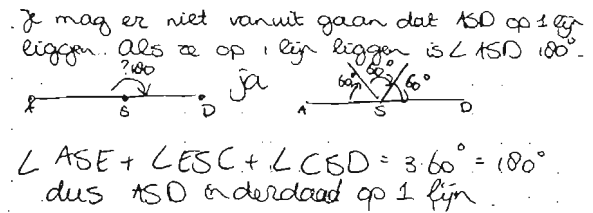 Je mag er niet vanuit gaan dat ASD op 1 lijn
liggen. Als ze op 1 lijn liggen is ∠ ASD 180°.
? 180
ja
60° 60° 60°
A S D
A S D
∠ ASE + ∠ ESC + ∠ CSD = 3·60° = 180°
dus ASD inderdaad op 1 lijn